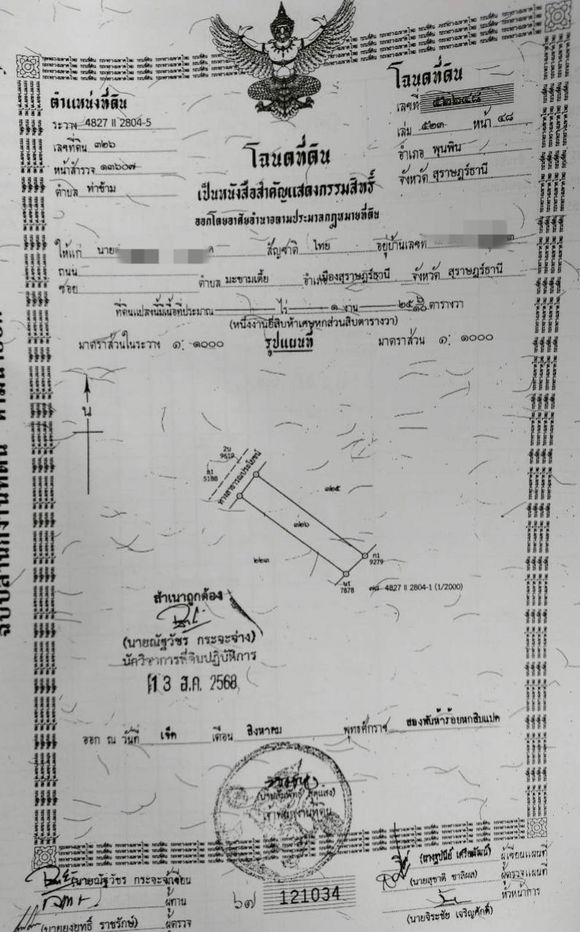 โฉนดที่ดิน
ตำแหน่งที่ดิน
ระวาง 4827 II 2804-5
เลขที่ดิน ๓๒๖
หน้าสำรวจ ๑๓๖๐๗
ตำบล ท่าข้าม
เลขที่
เล่ม ๕๒๓ หน้า ๔๘
อำเภอ พุนพิน
จังหวัด สุราษฎร์ธานี
โฉนดที่ดิน
เป็นหนังสือสำคัญแสดงกรรมสิทธิ์
ออกโดยอาศัยอำนาจตามประมวลกฎหมายที่ดิน
ให้แก่ นาย สัญชาติ ไทย อยู่บ้านเลขที่
ถนน
ซอย ตำบล มะขามเตี้ย อำเภอเมืองสุราษฎร์ธานี จังหวัด สุราษฎร์ธานี
ที่ดินแปลงนี้มีเนื้อที่ประมาณ - ไร่ ๑ งาน ตารางวา
(หนึ่งงานยี่สิบห้าเศษหกส่วนสิบตารางวา)
มาตราส่วนในระวาง ๑: ๑๐๐๐ รูปแผนที่ มาตราส่วน ๑: ๑๐๐๐
น
2น
9619
ก1
5188
ทางสาธารณประโยชน์
๓๒๕
๓๒๖
๒๒๓
ก1
9279
น1
7878
4827 II 2804-1 (1/2000)
สำเนาถูกต้อง
(นายณัฐวัชร กระจะจ่าง)
นักวิชาการที่ดินปฏิบัติการ
13 ส.ค. 2568
ออก ณ วันที่ เจ็ด เดือน สิงหาคม พุทธศักราช สองพันห้าร้อยหกสิบแปด
เจ้าพนักงานที่ดิน
(นายณัฐวัชร กระจะจ่าง) เขียน
ผู้ทาน
(นายยงยุทธิ์ ราชรักษ์) ผู้ตรวจ
๖๗ 121034
ผู้เขียนแผนที่
(นายสุชาติ ชาลีผล) ผู้ตรวจแผนที่
หัวหน้าการ
(นายจิระชัย เจริญศักดิ์)